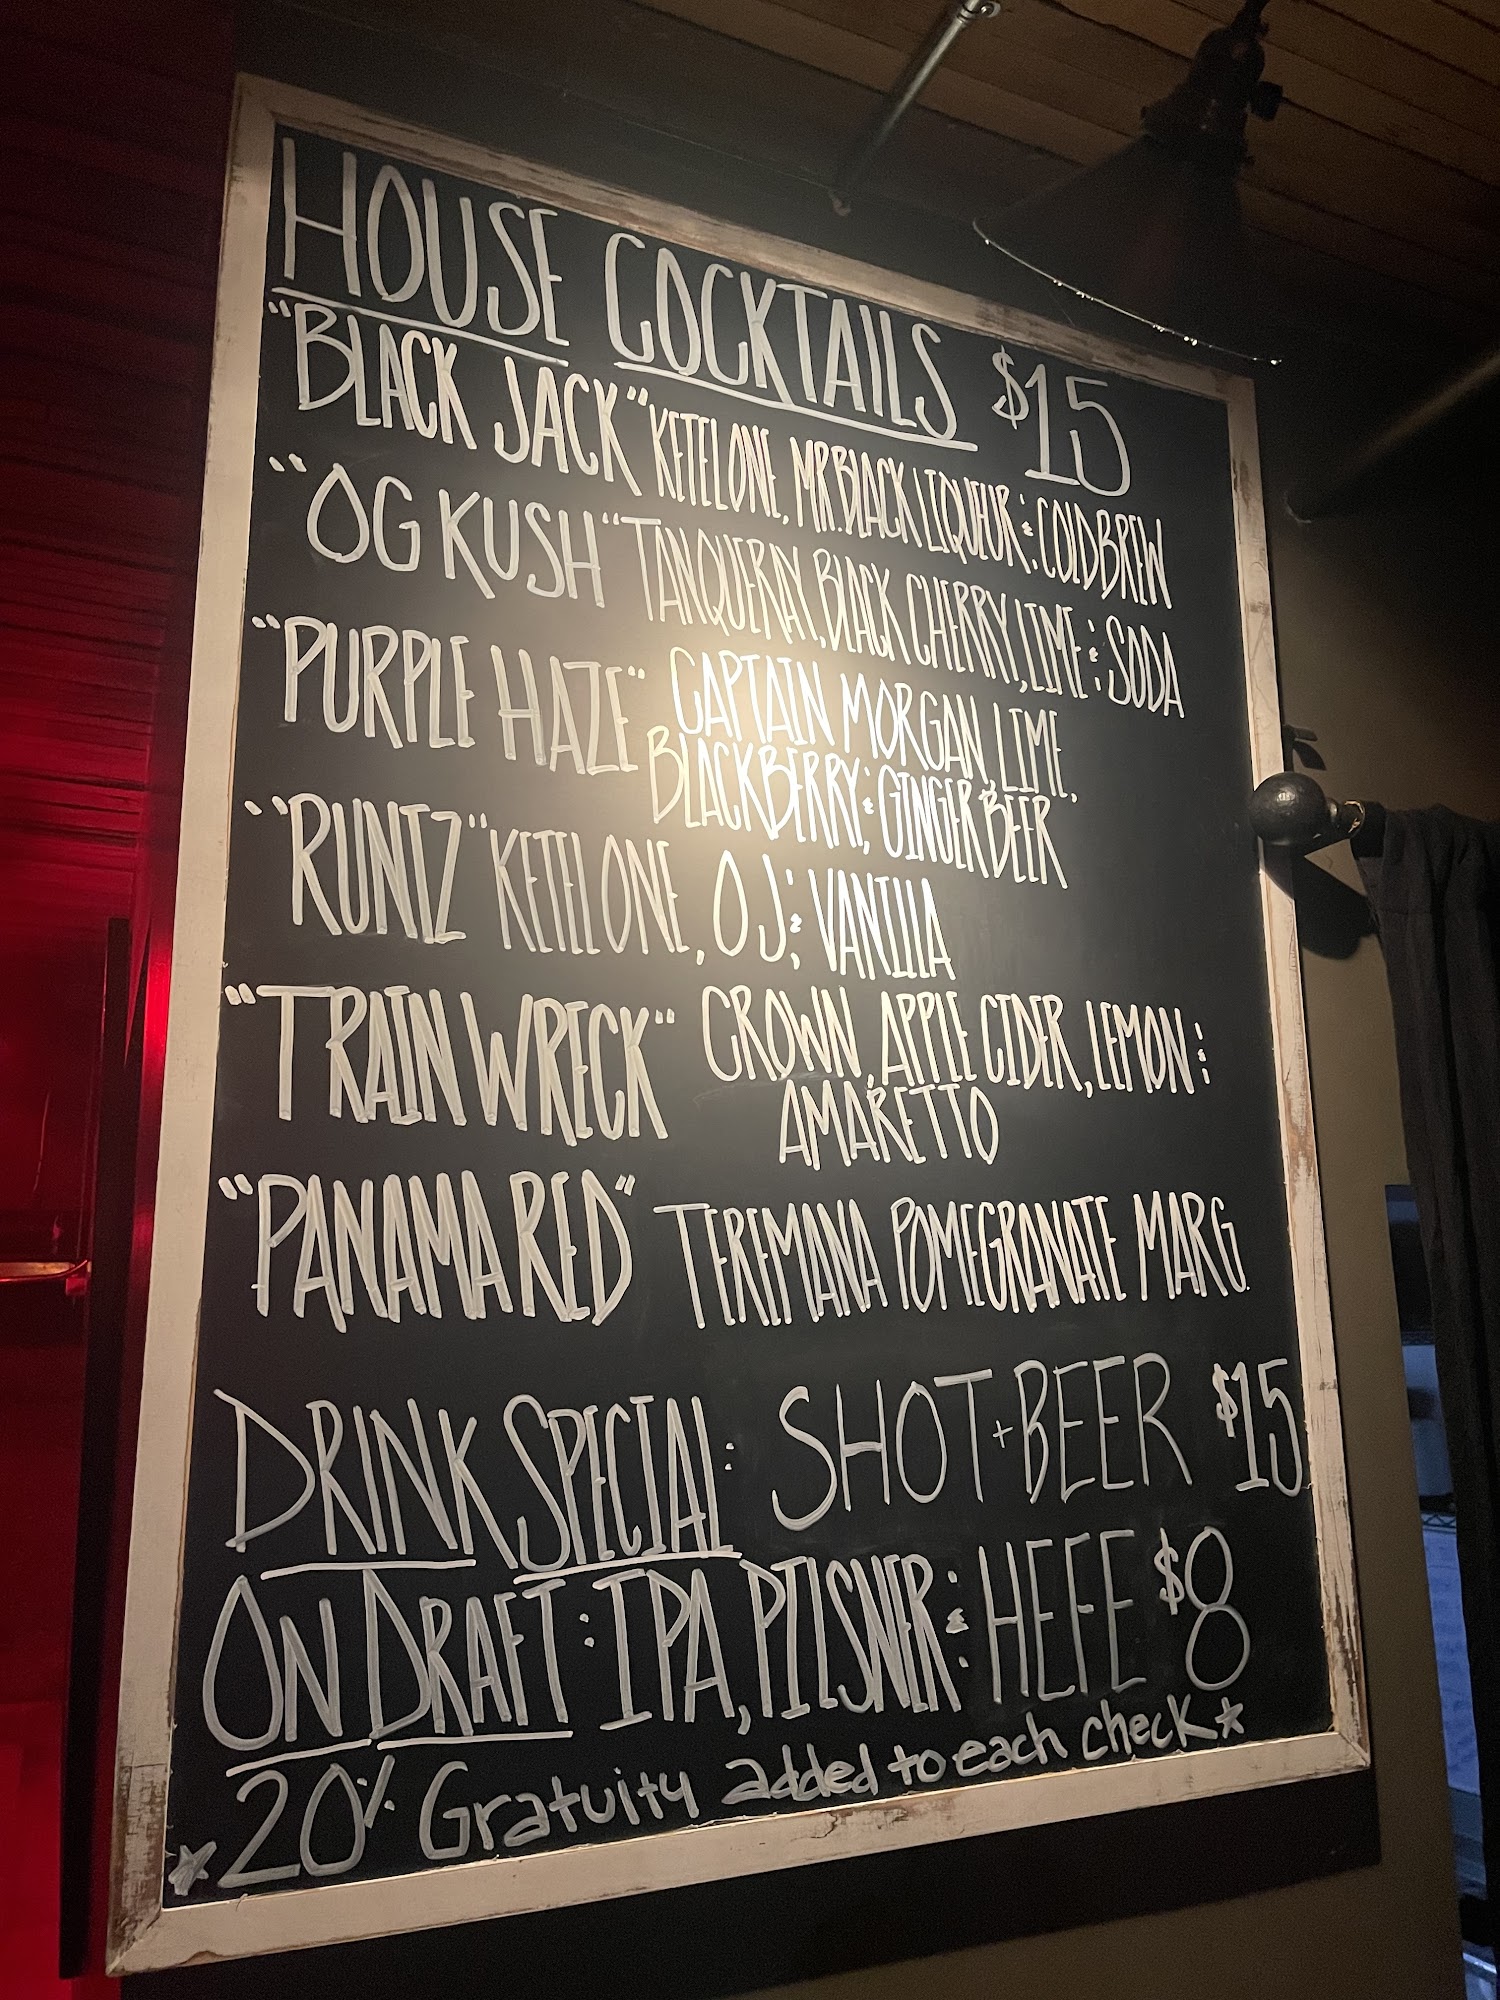 HOUSE COCKTAILS $15
"BLACK JACK" KETELONE, MR.BLACK LIQUEUR & COLD BREW
"OG KUSH" TANQUERAY, BLACK CHERRY, LIME & SODA
"PURPLE HAZE" CAPTAIN MORGAN, LIME,
BLACKBERRY & GINGER BEER
"RUNTZ" KETELONE, OJ & VANILLA
"TRAINWRECK" CROWN, APPLE CIDER, LEMON &
AMARETTO
"PANAMA RED" TEREMANA POMEGRANATE MARG.
DRINK SPECIAL: SHOT+BEER $15
ON DRAFT: IPA, PILSNER & HEFE $8
*20% Gratuity added to each check*